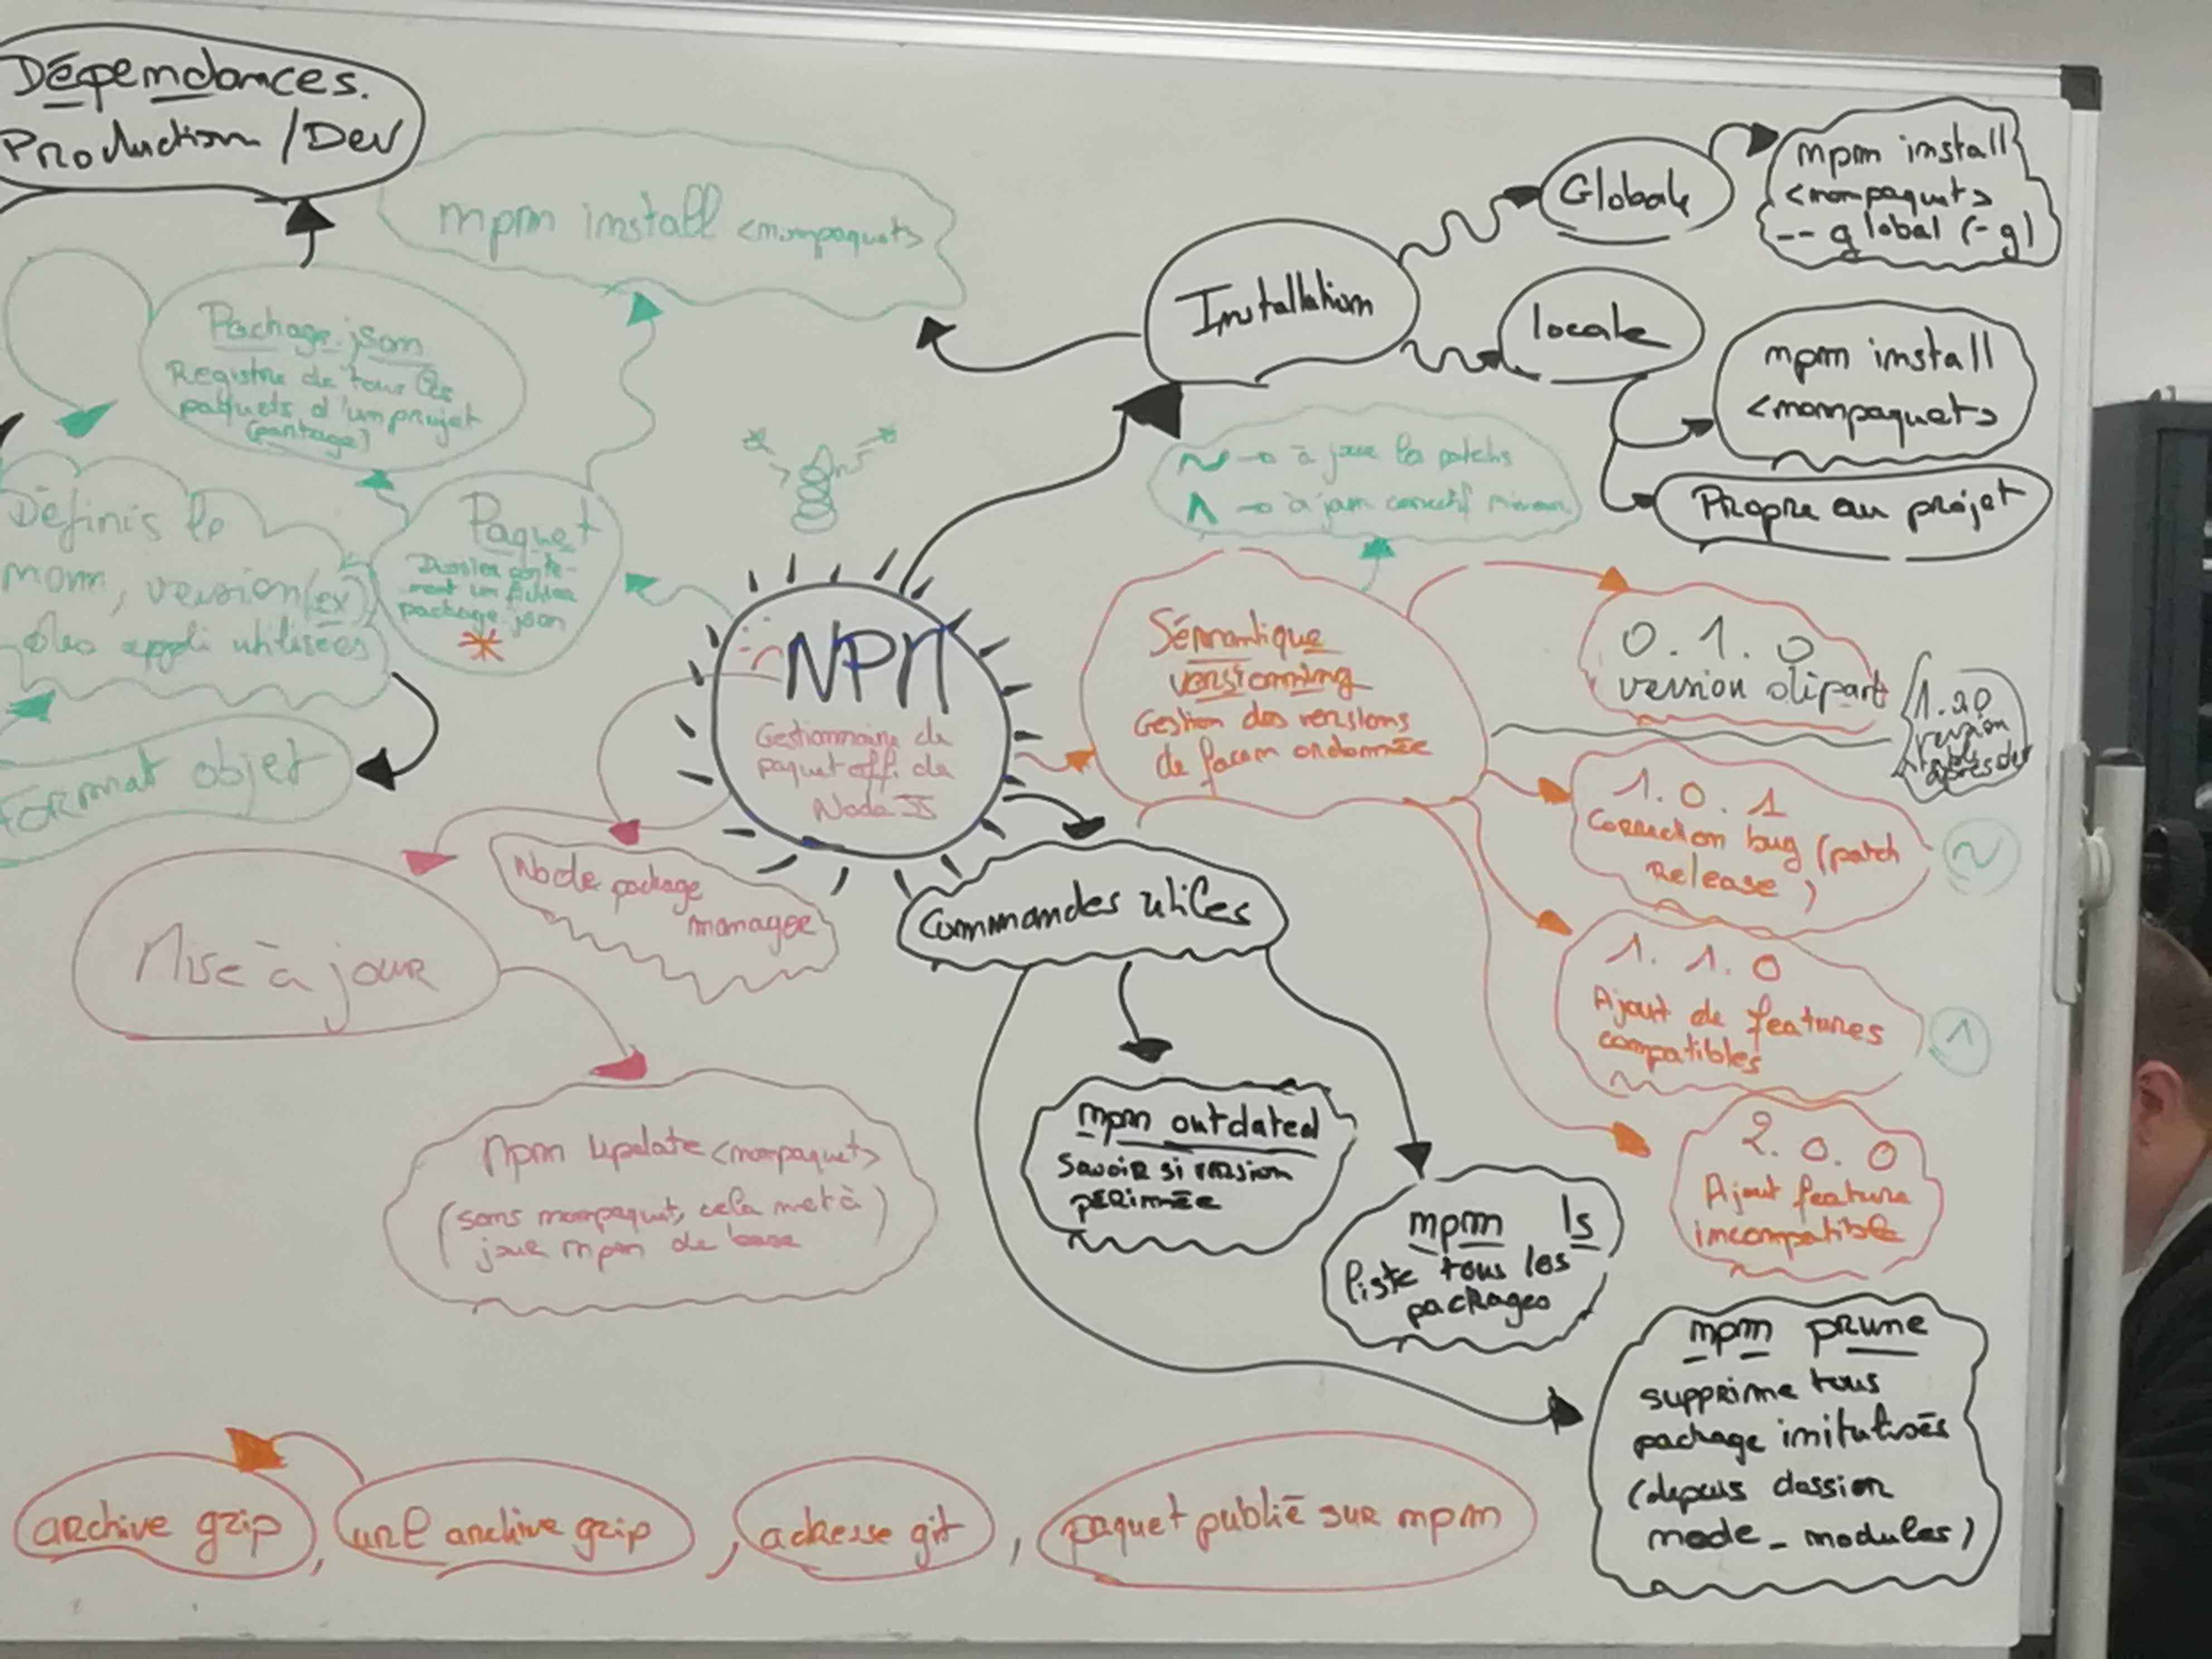 Dépendances.
Production / Dev
npm install <nompaquet>
Package.json
Registre de tous les
paquets d'un projet
(partage)
Définis le
nom, version (ex)
des appli utilisées
Format objet
Paquet
Dossier conte-
nant un fichier
package.json
NPM
Gestionnaire de
paquet offi. de
Node JS
Node package
manager
Mise à jour
npm update <nompaquet>
(sans nompaquet, cela met à
jour npm de base)
Installation
Globale
npm install
<nompaquet>
--global (-g)
locale
npm install
<nompaquet>
Propre au projet
~ → à jour les patchs
^ → à jour correctif mineur
Sémantique
versionning
Gestion des versions
de façon ordonnée
0.1.0
version départ
1.20
version
après
1.0.1
Correction bug (patch
Release)
~
1.1.0
Ajout de features
compatibles
^
2.0.0
Ajout feature
incompatible
Commandes utiles
npm outdated
Savoir si version
périmée
npm ls
liste tous les
packages
npm prune
supprime tous
package initutisés
(depuis dossier
node_modules)
archive gzip, url archive gzip, adresse git, paquet publié sur npm